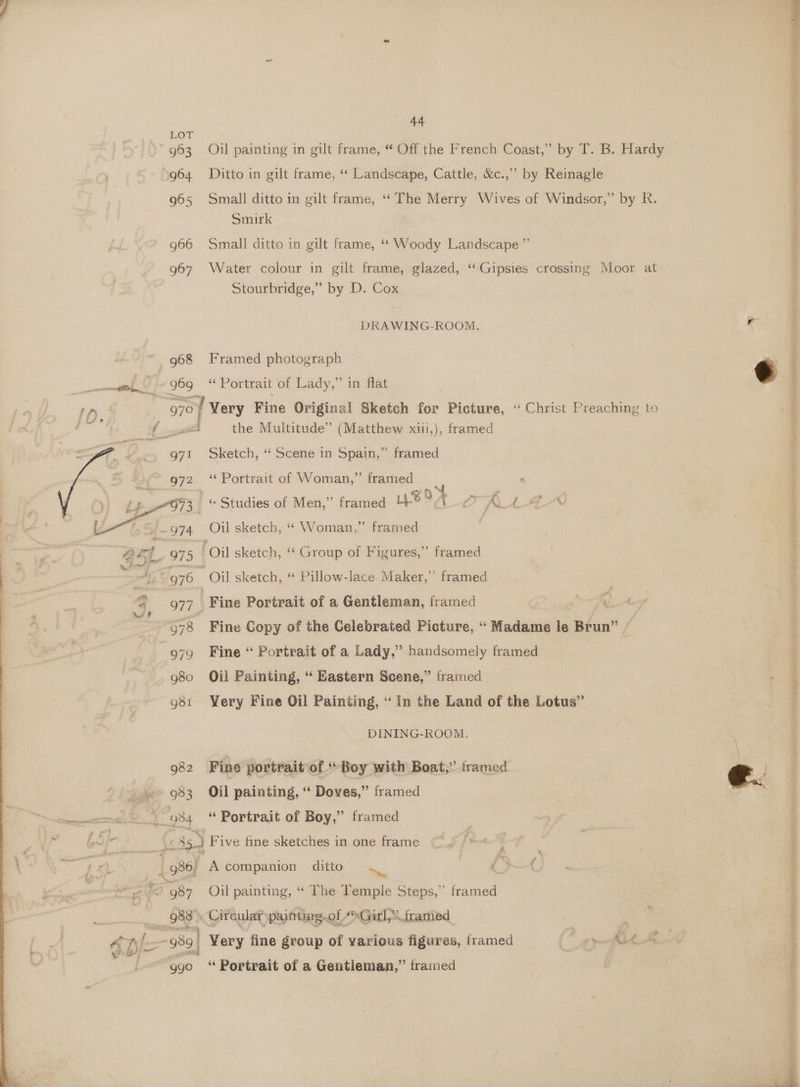 44
LOT
963 Oil painting in gilt frame, “ Off the French Coast,” by T. B. Hardy
964 Ditto in gilt frame, “ Landscape, Cattle, &c.,” by Reinagle
965 Small ditto in gilt frame, “ The Merry Wives of Windsor,” by R.
Smirk
966 Small ditto in gilt frame, “ Woody Landscape ”
967 Water colour in gilt frame, glazed, “ Gipsies crossing Moor at
Stourbridge,” by D. Cox
DRAWING-ROOM.
968 Framed photograph
969 “ Portrait of Lady,” in flat
970 Very Fine Original Sketch for Picture, “ Christ Preaching to
the Multitude” (Matthew xiii,), framed
971 Sketch, “ Scene in Spain,” framed
972 “ Portrait of Woman,” framed
973 “ Studies of Men,” framed
974 Oil sketch, “ Woman,” framed
975 Oil sketch, “ Group of Figures,” framed
976 Oil sketch, “ Pillow-lace Maker,” framed
977 Fine Portrait of a Gentleman, framed
978 Fine Copy of the Celebrated Picture, “ Madame le Brun”
979 Fine “ Portrait of a Lady,” handsomely framed
980 Oil Painting, “ Eastern Scene,” framed
981 Very Fine Oil Painting, “ In the Land of the Lotus”
DINING-ROOM.
982 Fine portrait of “ Boy with Boat,” framed
983 Oil painting, “ Doves,” framed
984 “ Portrait of Boy,” framed
985 Five fine sketches in one frame
986 A companion ditto
987 Oil painting, “ The Temple Steps,” framed
988 Circular painting of “ Girl,” framed
989 Very fine group of various figures, framed
990 “ Portrait of a Gentleman,” framed